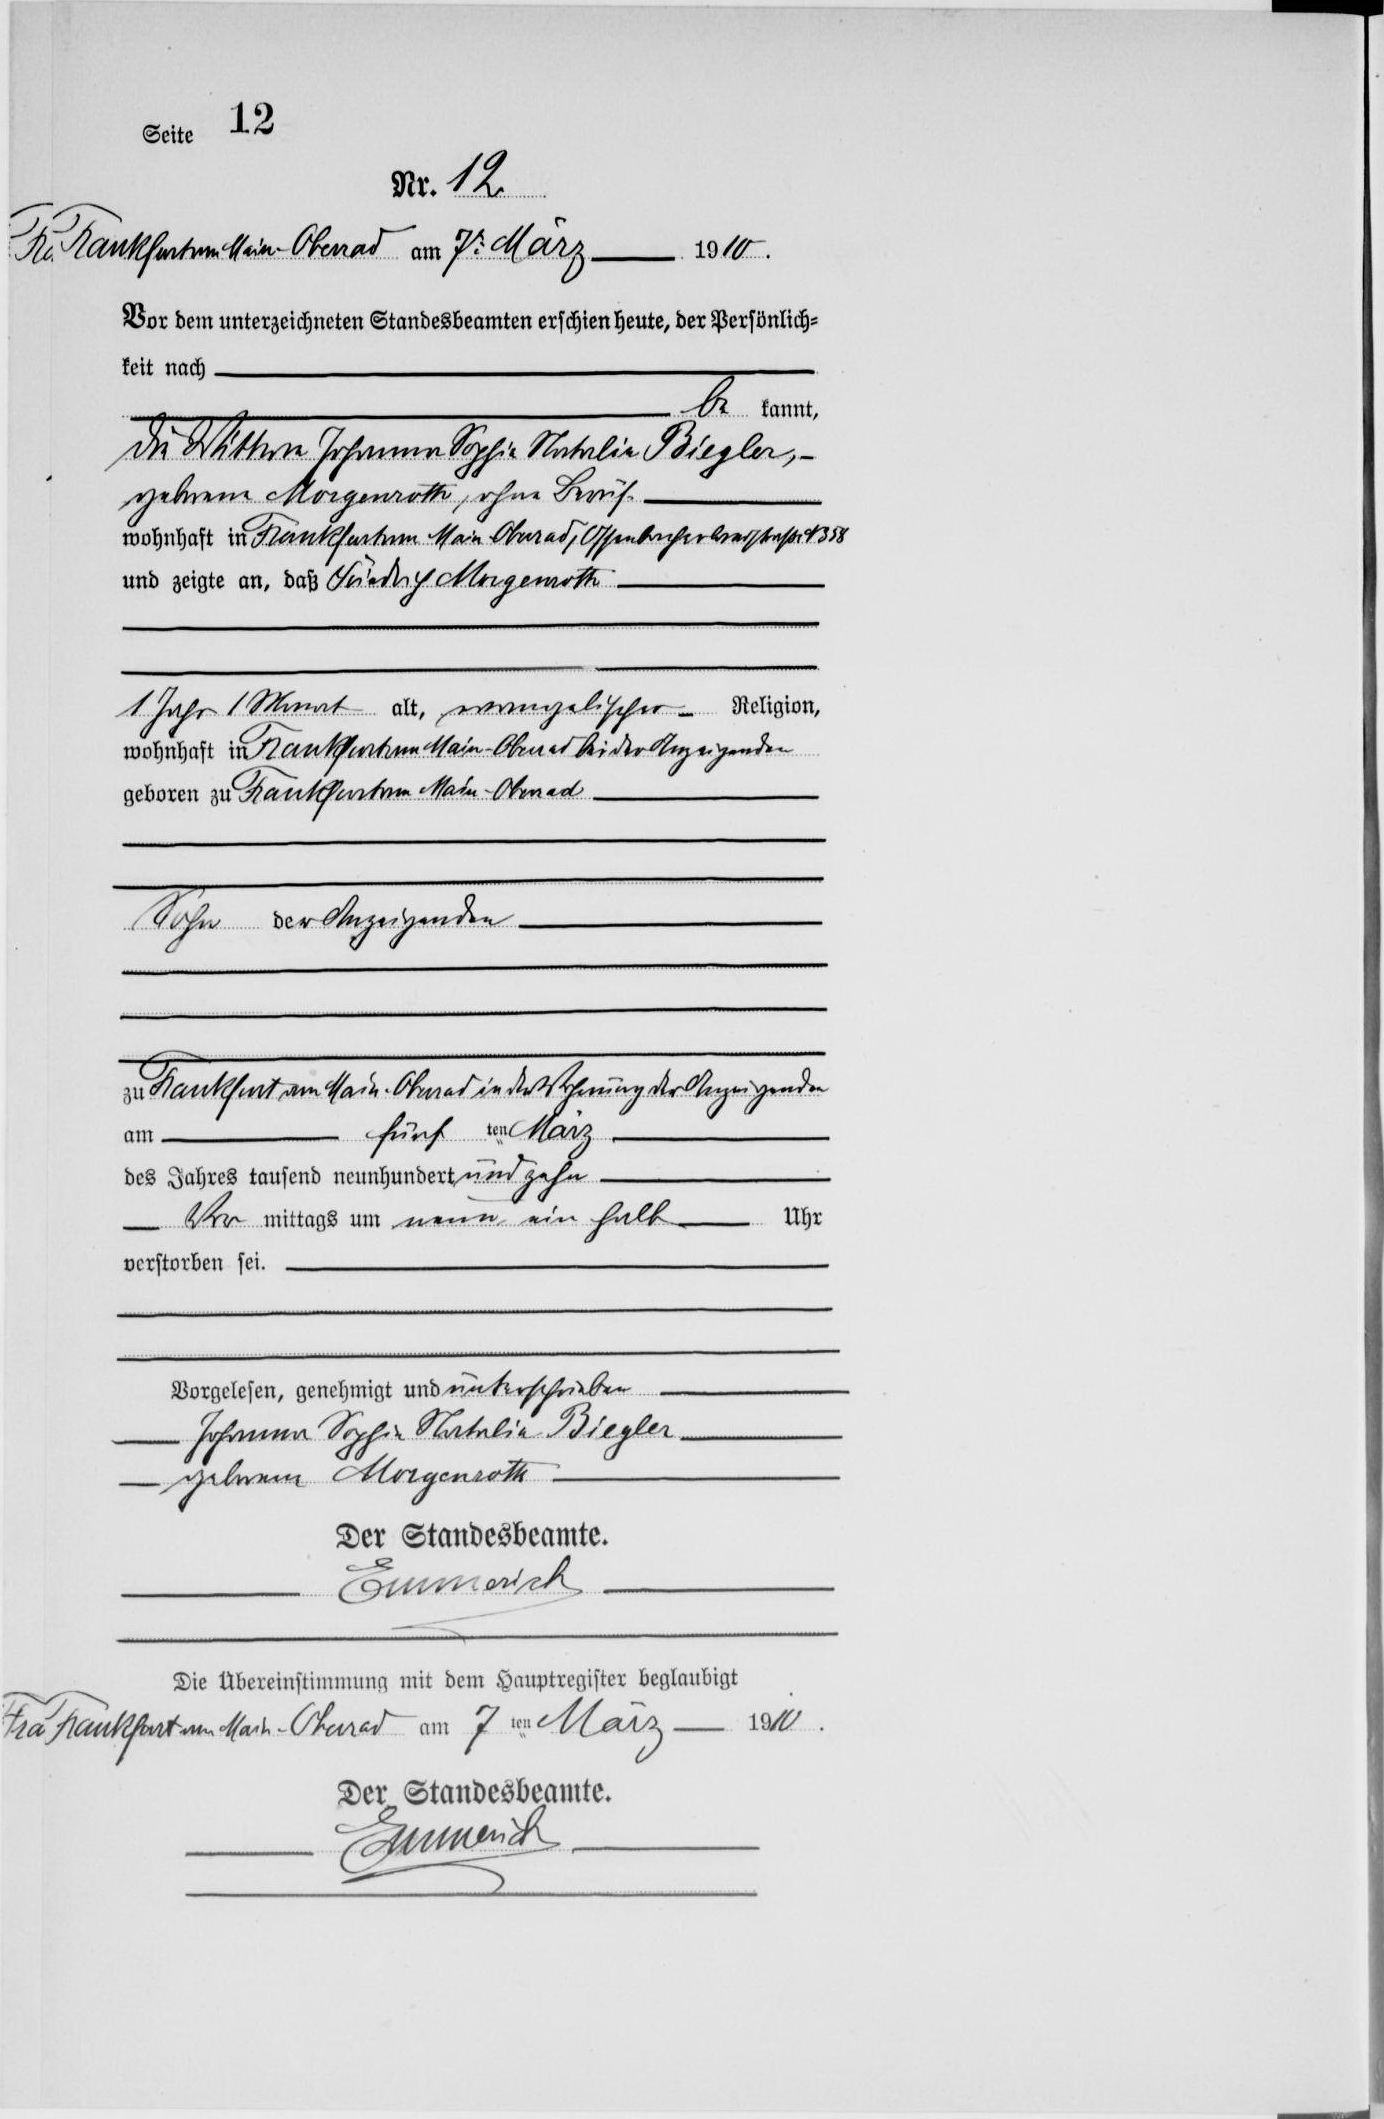 Seite 12
Nr. 12.
Frankfurt am Main-Oberrad am 7t. März 1910.
Vor dem unterzeichneten Standesbeamten erschien heute, der Persönlich=
keit nach
be kannt,
die Wittwe Johanna Sophie Natalie Biegler,
geborene Morgenroth, ohne Beruf
wohnhaft in Frankfurt am Main-Oberrad, Offenbacherlandstraße 358
und zeigte an, daß Friedrich Morgenroth
1 Jahr 1 Monat alt, evangelischer Religion,
wohnhaft in Frankfurt am Main-Oberrad bei der Anzeigenden
geboren zu Frankfurt am Main-Oberrad
Sohn der Anzeigenden
zu Frankfurt am Main-Oberrad in der Wohnung der Anzeigenden
am fünf ten März
des Jahres tausend neunhundert und zehn
Vor mittags um neun ein halb Uhr
verstorben sei.
Vorgelesen, genehmigt und unterschrieben
Johanna Sophie Natalie Biegler
geborene Morgenroth
Der Standesbeamte.
Emmerich
Die Übereinstimmung mit dem Hauptregister beglaubigt
Frankfurt am Main-Oberrad am 7 ten März 1910.
Der Standesbeamte.
Emmerich